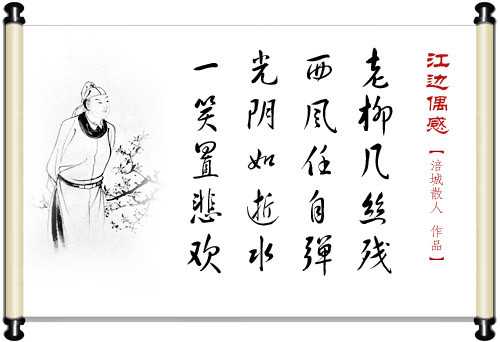 江边偶感
【涪城散人 作品】
老柳几丝残
西风任自弹
光阴如逝水
一笑置悲欢